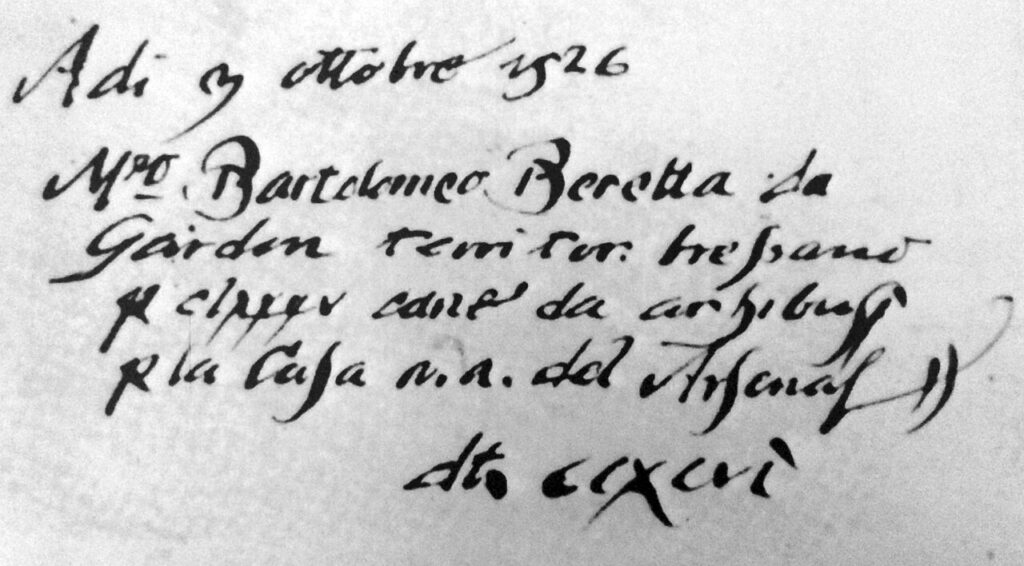 Adi 3 ottobre 1526
Mro. Bartolomeo Beretta da
Gardon territor: bressano
p clxxxv cane da archibusi
p la Casa n.a. del Arsenal
dt. cclxxxxvi